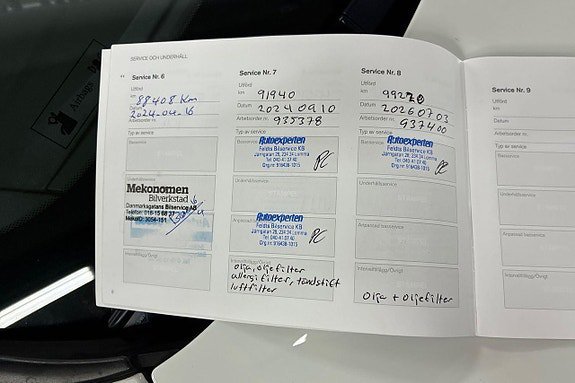 SERVICE OCH UNDERHÅLL
Service Nr. 6
Utförd
km
88408 Km
Datum
2024-04-16
Arbetsorder nr.
Typ av service
Basservice
Underhållsservice
Mekonomen
Bilverkstad
Danmarksgatans Bilservice AB
Anpassad basservice
Intervalltillägg/Övrigt
Service Nr. 7
Utförd
km
91940
Datum
20240910
Arbetsorder nr.
935378
Typ av service
Basservice
Autoexperten
Feldts Bilservice KB
Järngatan 28, 234 34 Lomma
Tel 040-41 37 40
Org.nr 916436-1015
PC
Underhållsservice
Anpassad basservice
Autoexperten
Feldts Bilservice KB
Järngatan 28, 234 34 Lomma
Tel 040-41 37 40
Org.nr 916436-1015
PC
Intervalltillägg/Övrigt
olja, oljefilter
allergifilter, tändstift
luftfilter
Service Nr. 8
Utförd
km
99220
Datum
20260703
Arbetsorder nr.
937400
Typ av service
Basservice
Autoexperten
Feldts Bilservice KB
Järngatan 28, 234 34 Lomma
Tel 040-41 37 40
Org.nr 916436-1015
PC
Underhållsservice
Anpassad basservice
Intervalltillägg/Övrigt
Olja + Oljefilter
Service Nr. 9
Utförd
km
Datum
Arbetsorder nr.
Typ av service
Basservice
Underhållsservice
Anpassad basservice
Intervalltillägg/Övrigt